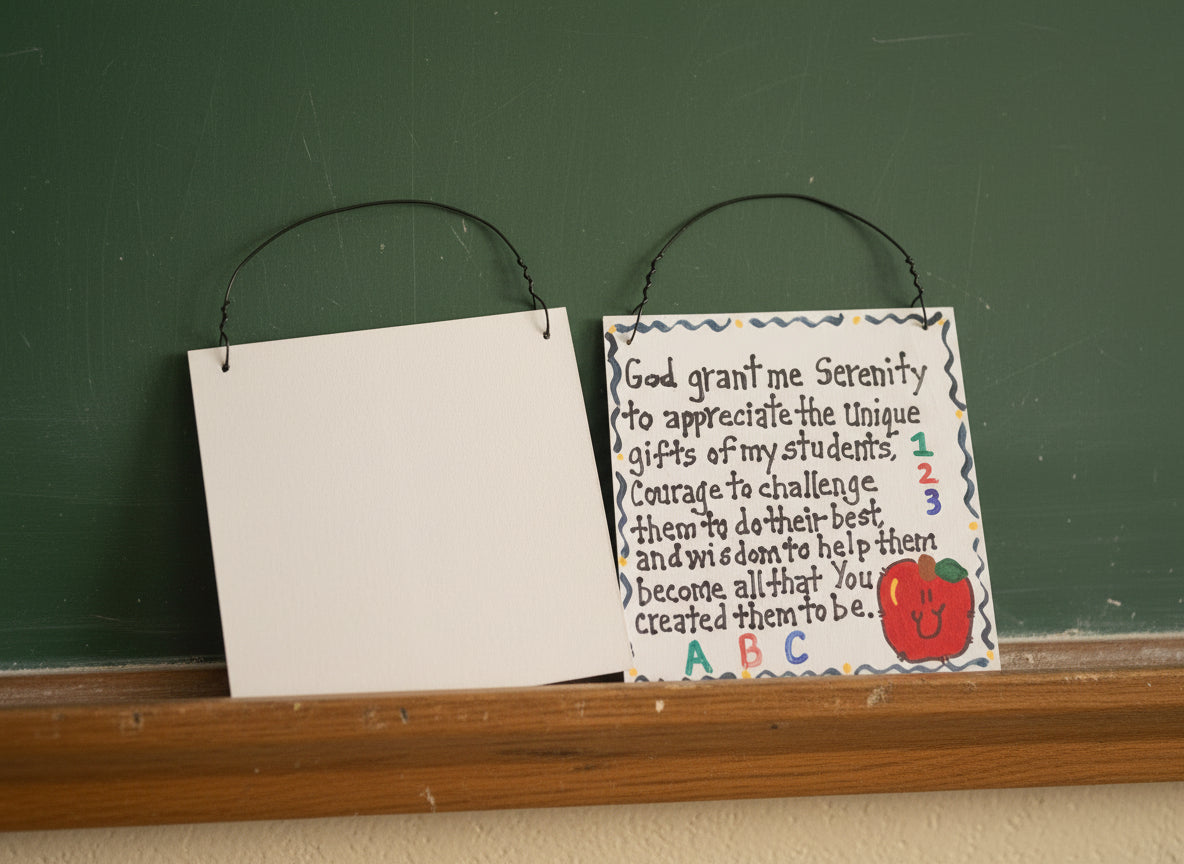 God grant me Serenity
to appreciate the Unique
gifts of my students,
Courage to challenge
them to do their best,
and wisdom to help them
become all that You
created them to be.
1
2
3
A B C